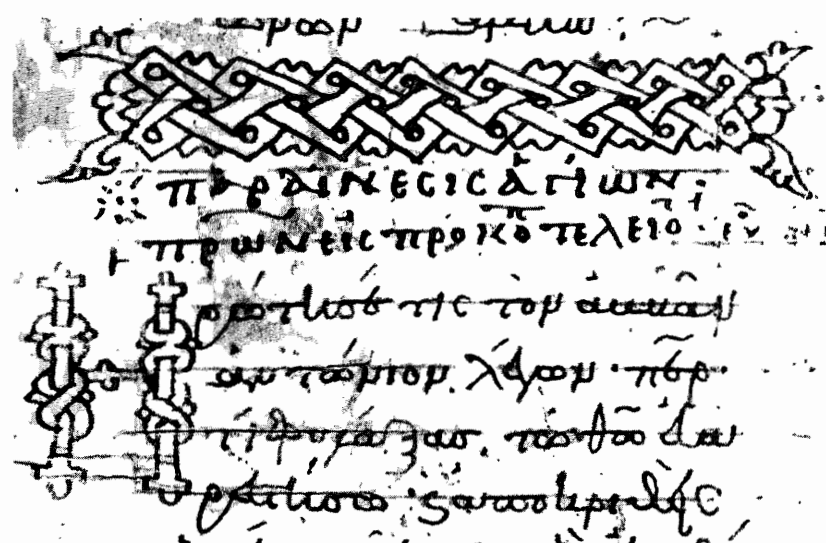 παραίνεσις ἁγίων
πρων εἰς προκοπ τελειο
Ἠρώτησέ τις τὸν ἀββᾶν
ἀντώνιον λέγων· περ·
τί φυλάξας τῷ θῶ εὐα
ρεστήσω· ϗ ἀποκριθεὶς